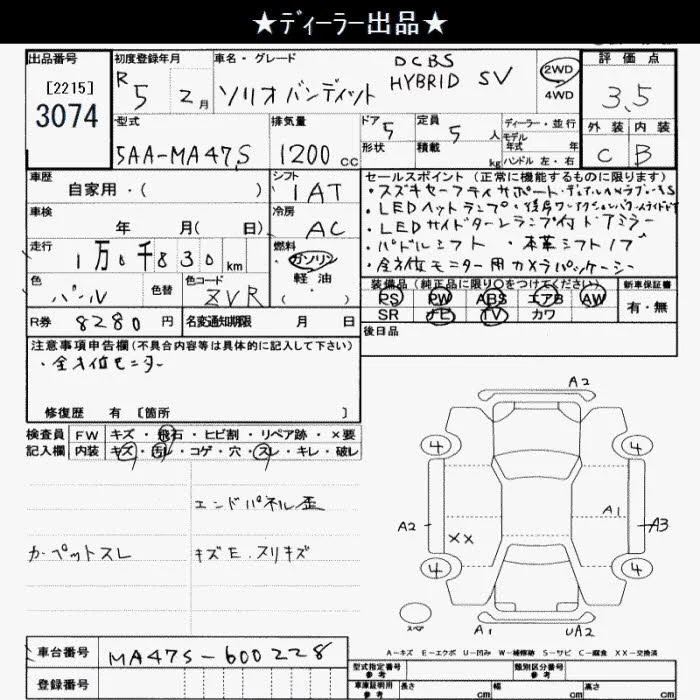 ★ディーラー出品★
出品番号
[2215]
3074
初度登録年月
R 5 年 2 月
車名・グレード
DCBS
ソリオバンディット HYBRID SV
2WD
4WD
評価点
3.5
外装 内装
C B
型式
5AA-MA47S
排気量
1200 cc
ドア 5
形状
定員 5 人
積載 kg
ディーラー・並行
モデル
年式 年
ハンドル 左・右
車歴
自家用・( )
シフト
1AT
車検
年 月( 日)
冷房
AC
走行
1万0千830 km
燃料
ガソリン
軽油
( )
色
パール
色替
色コード
ZVR
R券 8280 円
名変通知期限 月 日
セールスポイント (正常に機能するものに限ります)
・LEDヘットランプ・
・LEDサイドターンランプ付ドアミラー
・パドルシフト ・本革シフトノブ
・全方位モニター用カメラパッケージ
装備品(純正品に限り○をつけてください)
PS PW ABS エアB AW
SR ナビ TV カワ
新車保証書
有・無
後日品
注意事項申告欄(不具合内容等は具体的に記入して下さい)
・全方位モニター
修復歴 有 [箇所 ]
検査員
記入欄
FW キズ・飛石・ヒビ割・リペア跡・×要
内装 キズ・汚レ・コゲ・穴・スレ・キレ・破レ
エンドパネル歪
カーペットスレ キズE.スリキズ
A2
4 4
A2 XX A1 A3
4 4
スペア
A1 UA2
A-キズ E-エクボ U-凹み W-補修跡 S-サビ C-腐食 XX-交換済
車台番号 MA47S-600228
登録番号
型式指定番号
参考
類別区分番号
参考
車庫証明用
参考
長さ cm 幅 cm 高さ cm